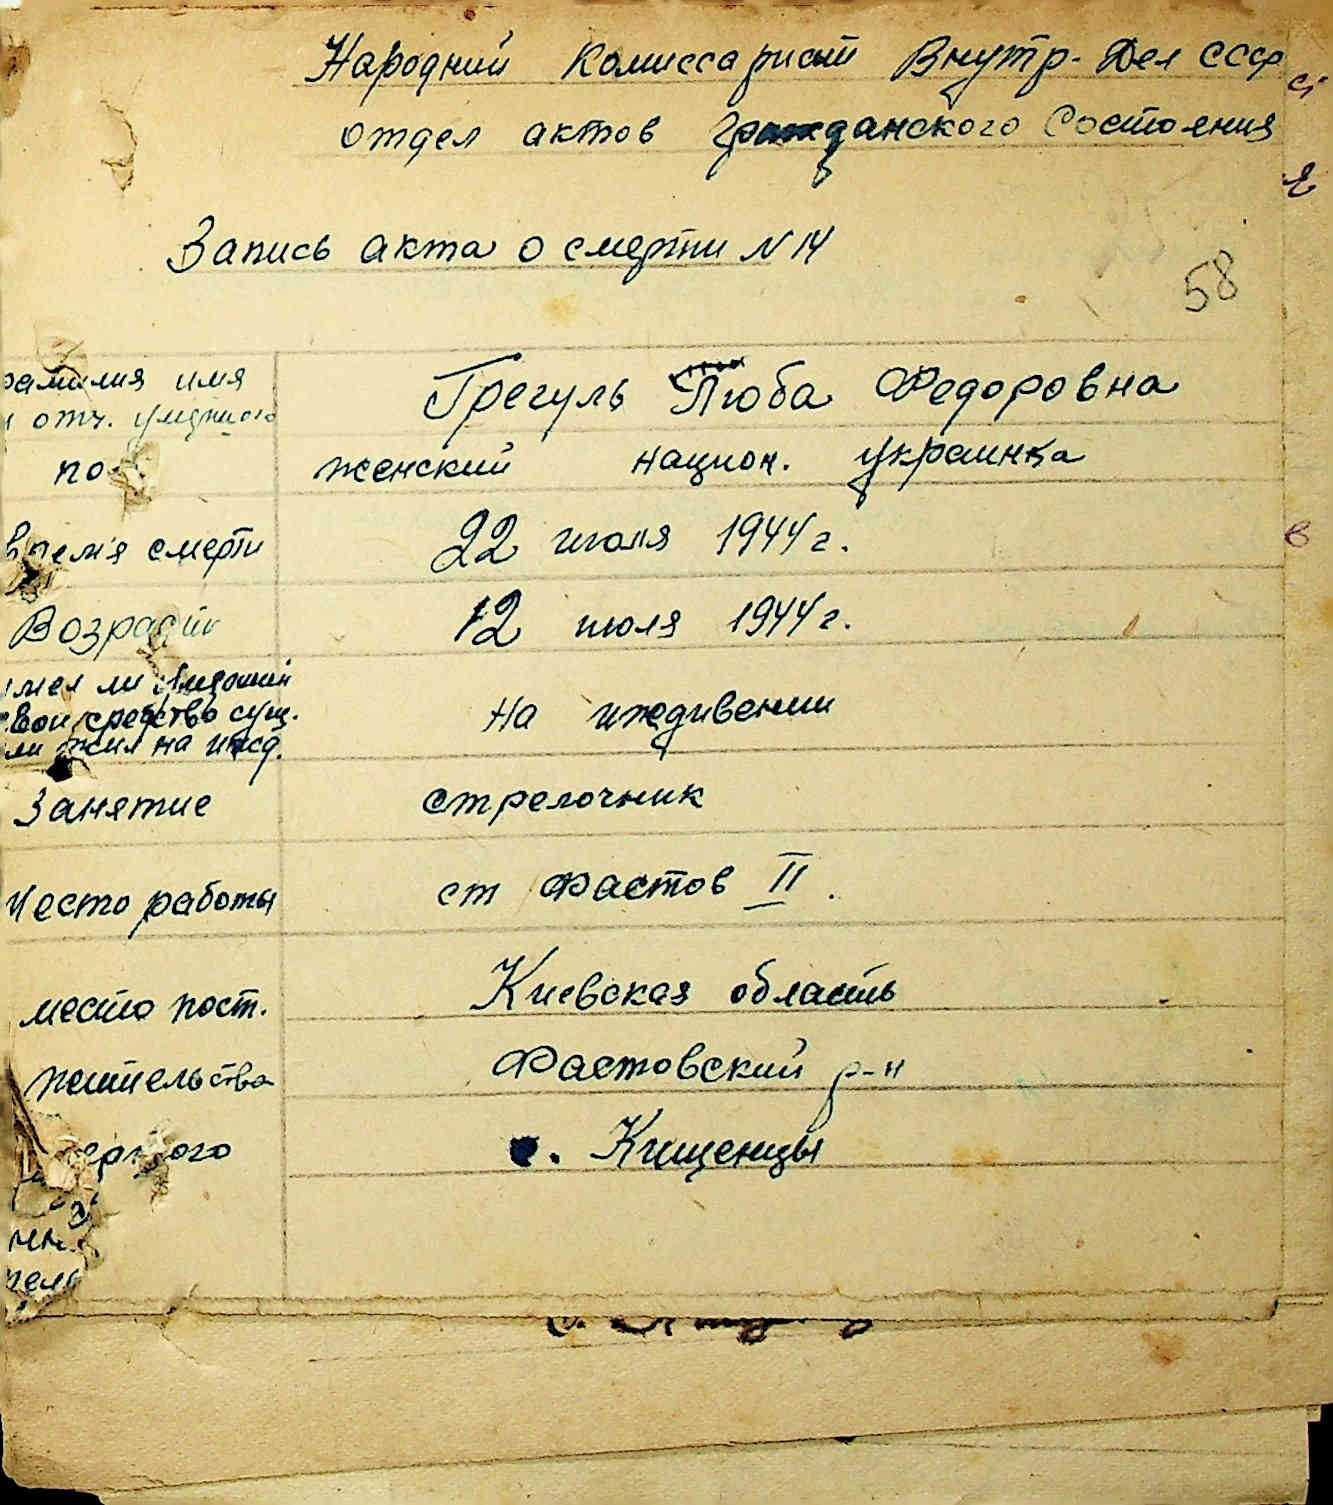 Народний Комиссариат Внутр. Дел СССР
отдел актов гражданского Состояния
Запись акта о смерти N 14
58
фамилия имя
и отч. умершого
Грегуль Люба Федоровна
по
женский национ. украинка
время смерти
22 июля 1944 г.
Возраст
12 июля 1944 г.
имел ли умерший
свои средства сущ.
или жил на ижд.
на иждивении
Занятие
стрелочник
Место работы
ст Фастов II.
место пост.
Киевская область
жительства
Фастовский р-н
с. Кищенцы